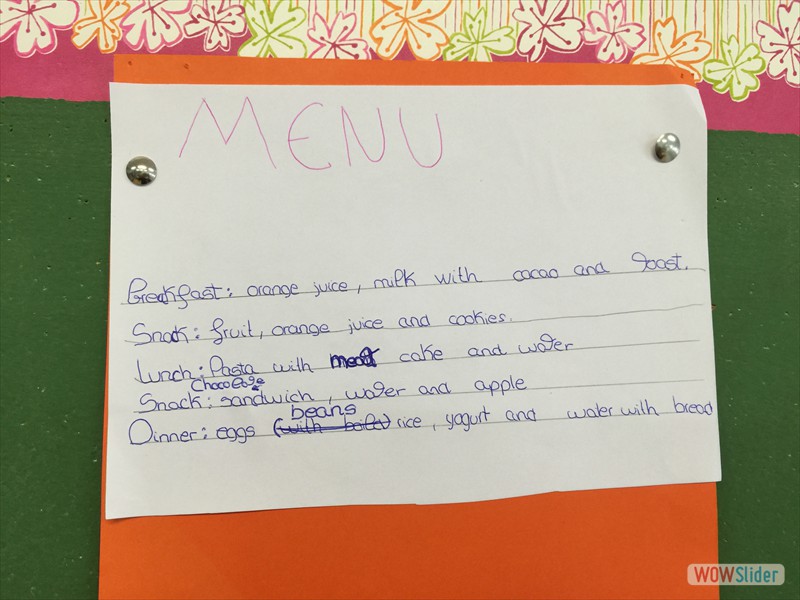 MENU
Breakfast: orange juice, milk with cacao and toast.
Snack: fruit, orange juice and cookies.
Lunch: Pasta with meat cake and water
Chocolate
Snack: sandwich, water and apple
beans
Dinner: eggs (with boiled) rice, yogurt and water with bread
WOWSlider